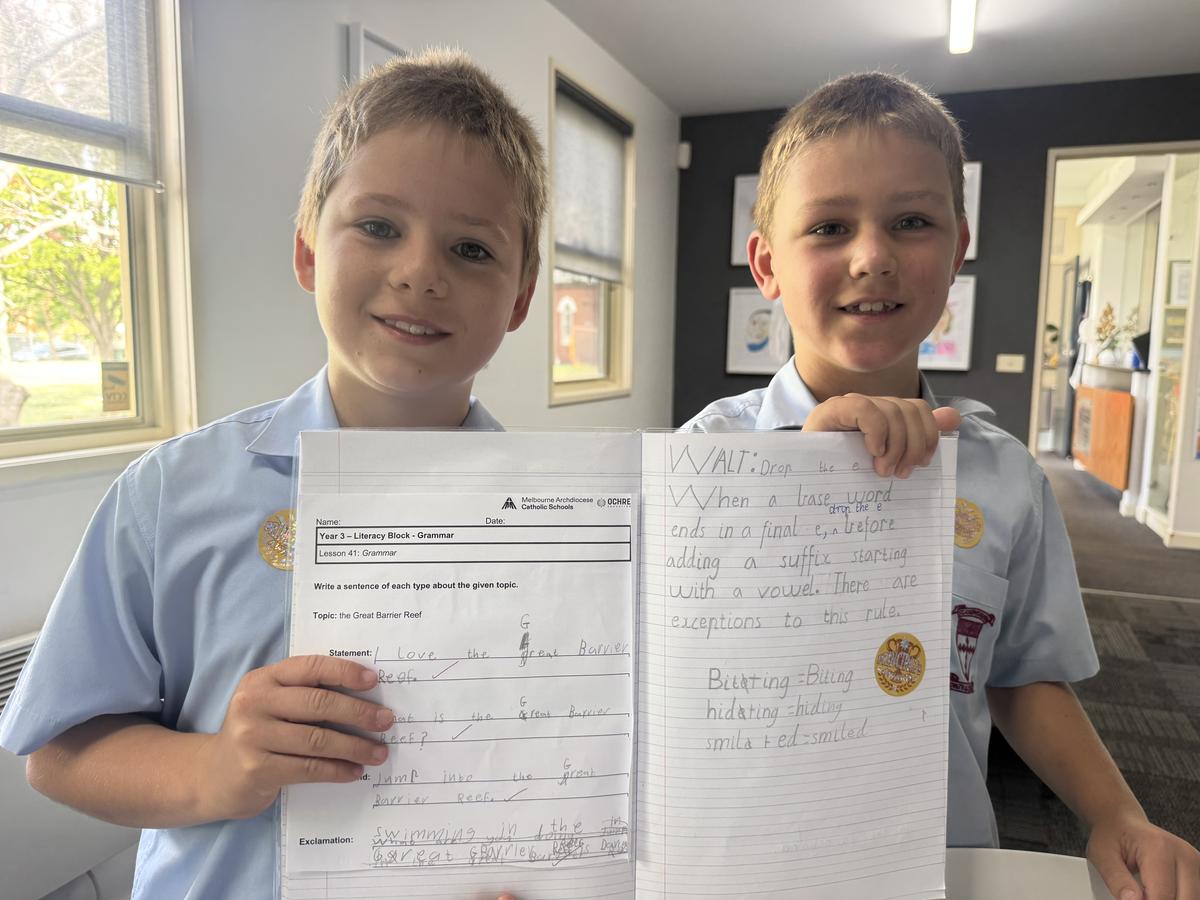 Melbourne Archdiocese
Catholic Schools
OCHRE
Name: Date:
Year 3 – Literacy Block - Grammar
Lesson 41: Grammar
Write a sentence of each type about the given topic.
Topic: the Great Barrier Reef
G
Statement: I love the great Barrier
Reef. ✓
G
is the great Barrier
Reef? ✓
G
Jump into the great
Barrier Reef. ✓
Exclamation: swimming in the
WALT: Drop the e
When a base word
drop the e
ends in a final e, ^ before
adding a suffix starting
with a vowel. There are
exceptions to this rule.
=Biting
=hiding
+ed=smiled